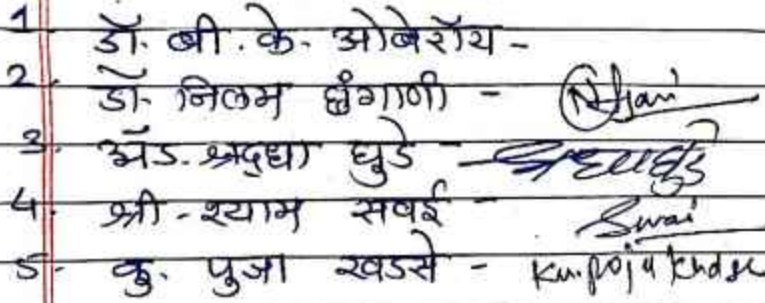 1 डॉ. बी. के. ओबेरॉय -
2. डॉ. निलम छंगाणी -
3. अॅड. श्रद्धा घुडे - श्रद्धा घुडे
4. श्री - श्याम सवई - Swai
5. कु. पुजा खडसे - Ku. Poja Khadse